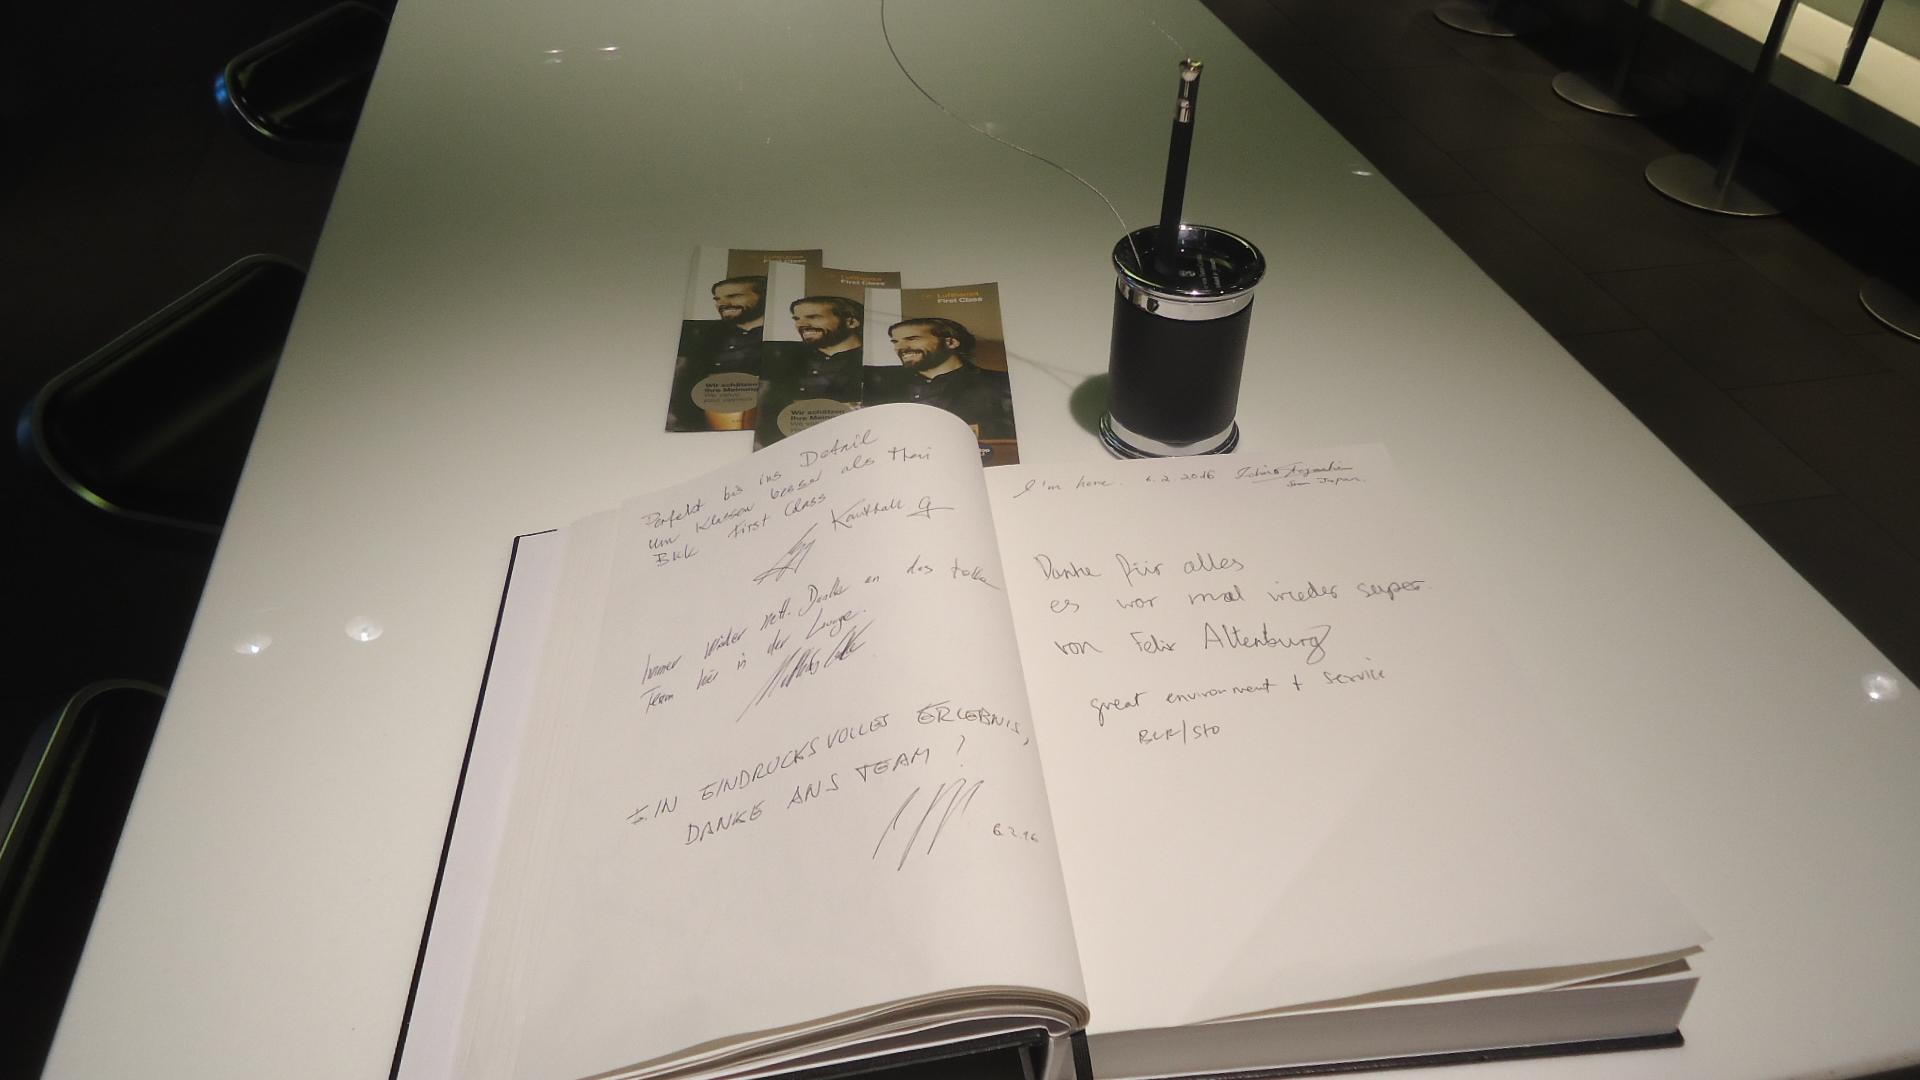 Lufthansa
First Class
Lufthansa
First Class
Lufthansa
First Class
Wir schätzen
Ihre Meinung
We value
your opinion
Wir schätzen
Ihre Meinung
Perfekt bis ins Detail
um Klassen besser als Thai
BKK First Class
Immer wieder nett. Danke an das tolle
Team hier in der Lounge.
EIN EINDRUCKSVOLLES ERLEBNIS,
DANKE ANS TEAM!
6.2.16
I'm here. 6.2.2016
from Japan.
Danke für alles
es war mal wieder super
von Felix Altenburg
great environment + service